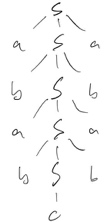 S
a S a
b S b
a S a
b S b
c